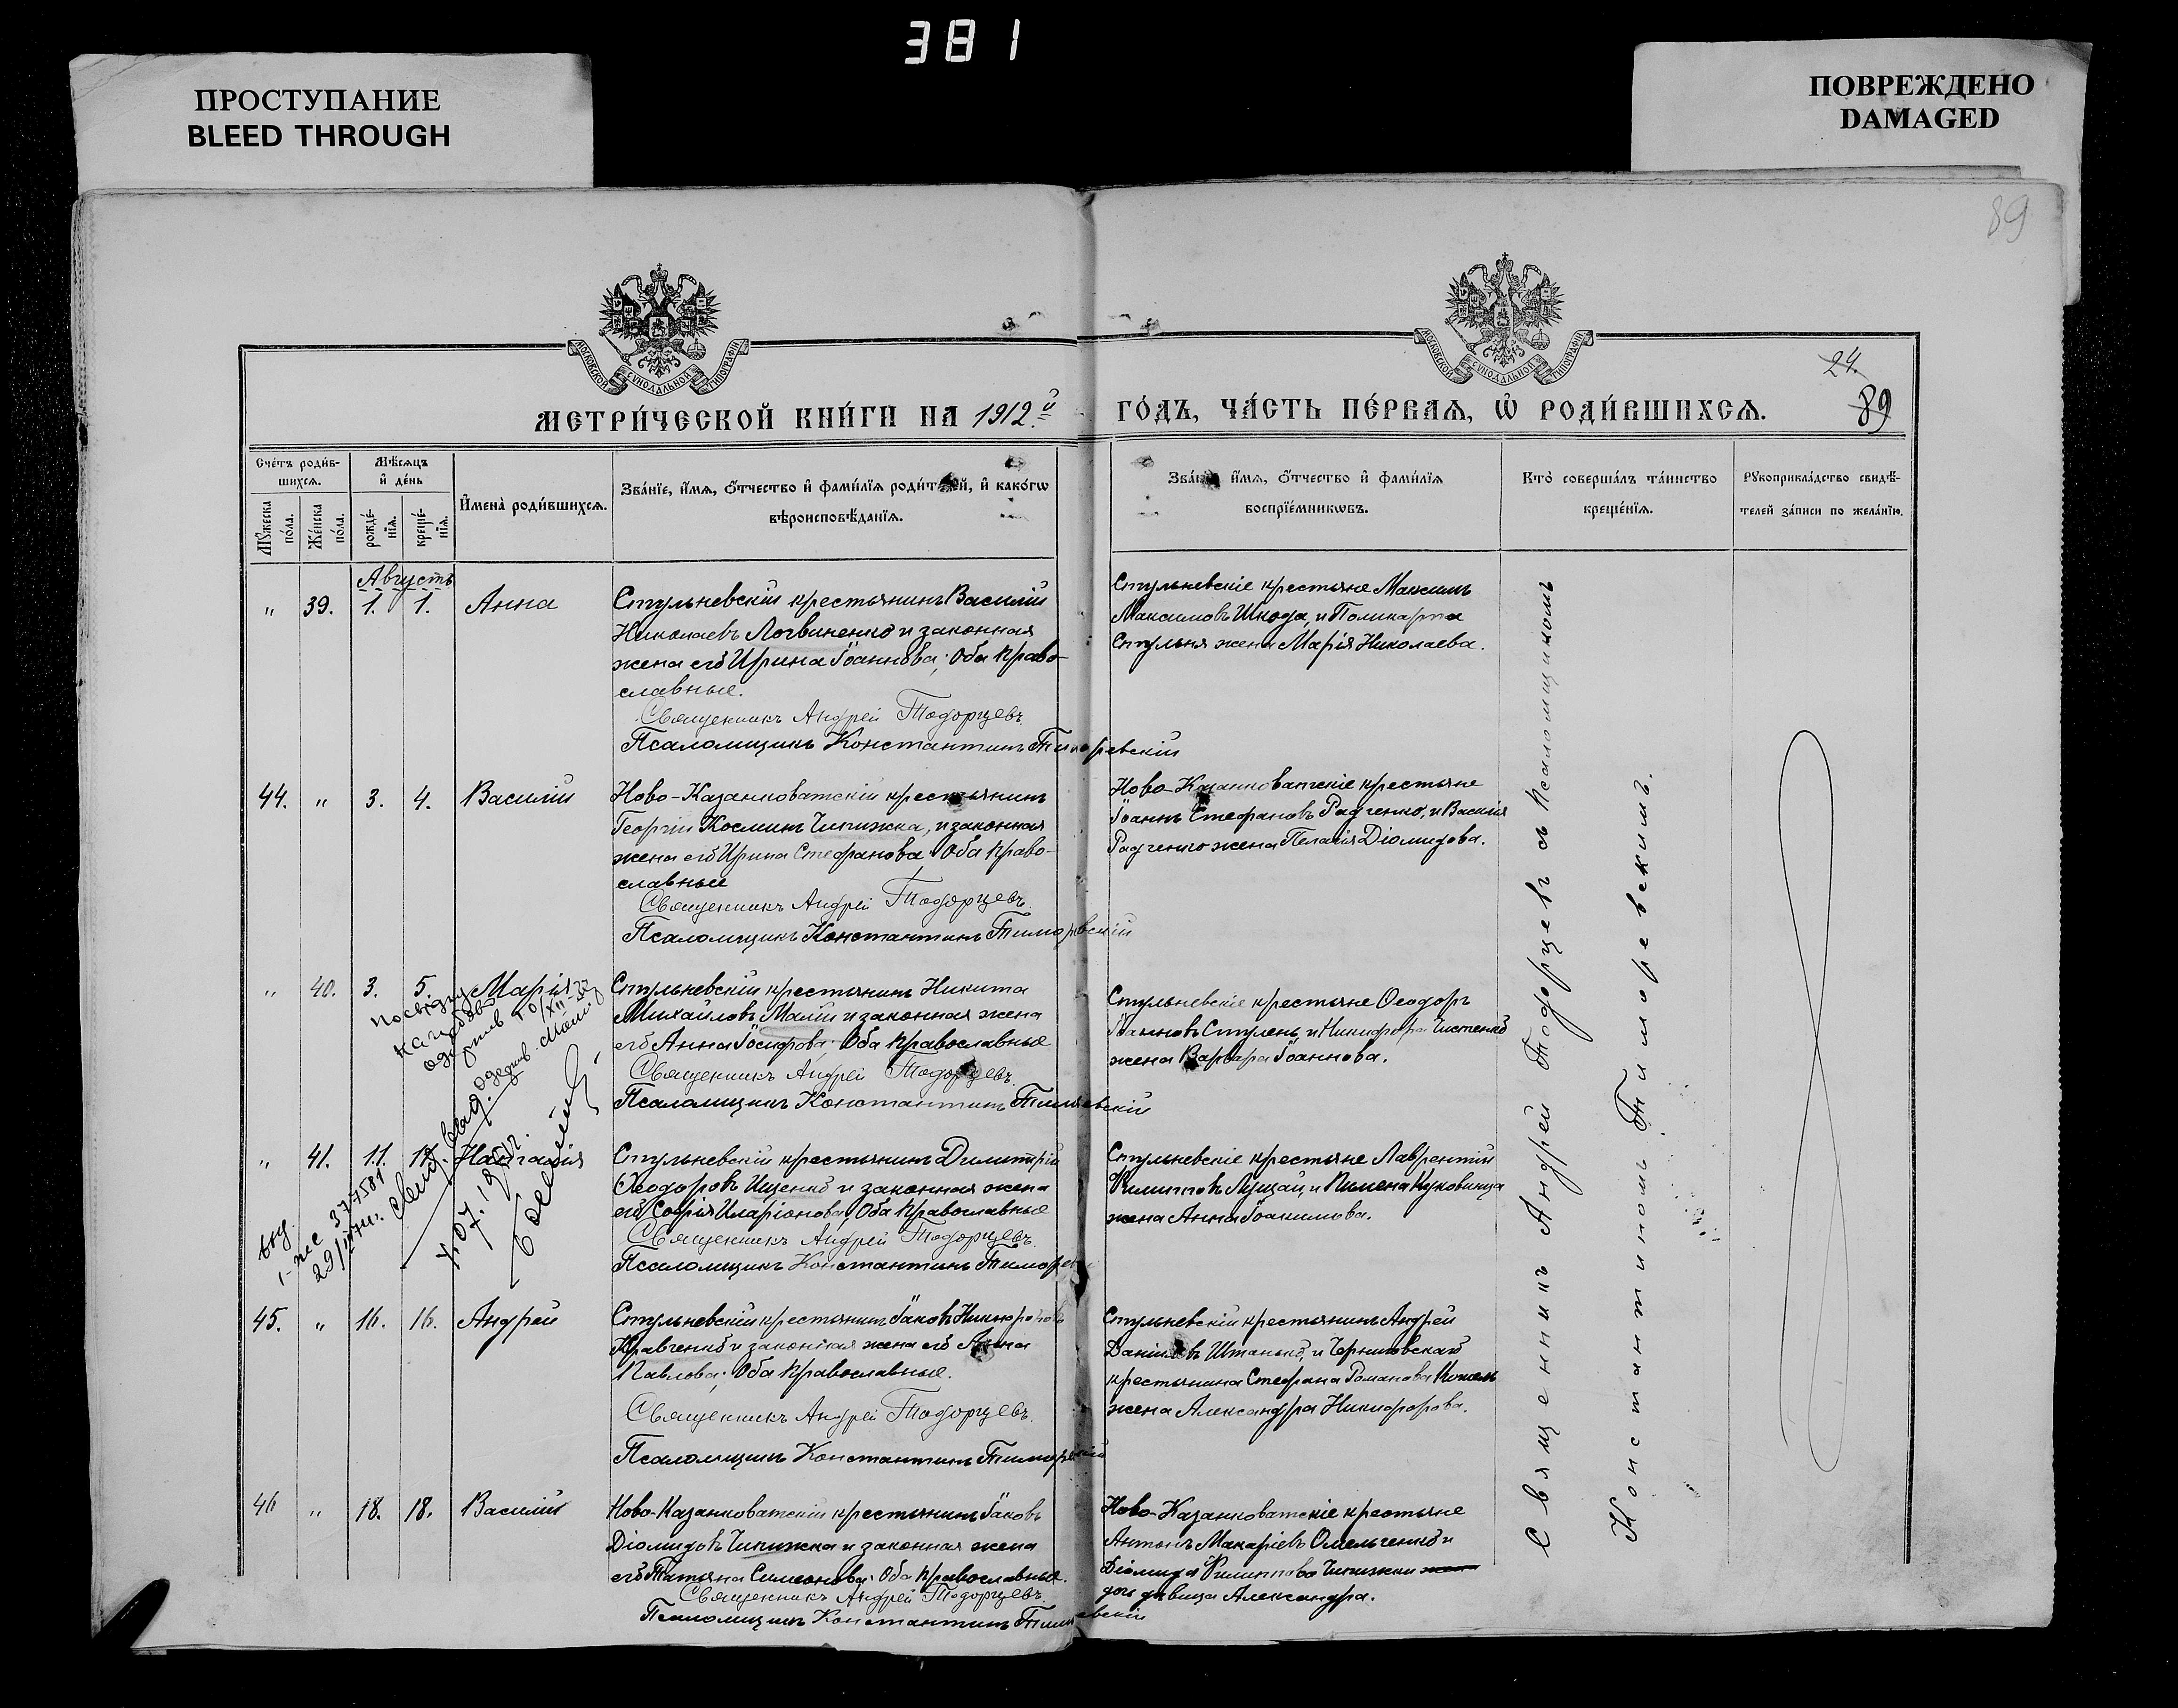 381
ПРОСТУПАНИЕ
BLEED THROUGH
ПОВРЕЖДЕНО
DAMAGED
89
МОСКОВСКОЙ СѴНОДАЛЬНОЙ ТИПОГРАФІИ
МОСКОВСКОЙ СѴНОДАЛЬНОЙ ТИПОГРАФІИ
24.
89
МЕТРИ́ЧЕСКОЙ КНИ́ГИ НА 1912.й ГО́ДЪ, ЧА́СТЬ ПЕ́РВАѦ, Ѡ҆ РОДИ́ВШИХСѦ.
Сче́тъ роди́в-
шихсѧ.
Мѣ́сѧцъ
и҆ де́нь
Мꙋ́жеска по́ла.
Же́нска по́ла.
рожде́-нїѧ.
креще́-нїѧ.
И҆мена̀ роди́вшихсѧ.
Зва́нїе, и҆́мѧ, ѻ҆́тчество и҆ фами́лїѧ роди́телей, и҆ како́гѡ
вѣроисповѣ́данїѧ.
Зва́нїе, и҆́мѧ, ѻ҆́тчество и҆ фами́лїѧ
воспрїе́мникѡвъ.
Кто̀ соверша́лъ та́инство
креще́нїѧ.
Рꙋкоприкла́дство свидѣ́-
телей за́писи по жела́нїю.
Августъ
„ 39. 1. 1. Анна
Стульневскій крестьянинъ Василій
Николаевъ Логвиненко и законная
жена его Ирина Іоаннова; Оба право-
славные.
Священникъ Андрей Тодорцевъ
Псаломщикъ Константинъ Тиморевскій
Стульневскіе крестьяне Максимъ
Максимовъ Шкода, и Поликарпа
Стульня жена Марія Николаева.
44. „ 3. 4. Василій
Ново-Казанковатскій крестьянинъ
Георгій Косминъ Чипижка, и законная
жена его Ирина Стефанова; Оба право-
славные
Священникъ Андрей Тодорцевъ.
Псаломщикъ Константинъ Тиморевскій
Ново-Казанковатскіе крестьяне
Іоаннъ Стефановъ Радченко, и Василія
Радченко жена Пелагія Діомидова.
„ 40. 3. 5. Марія
Стульневскій крестьянинъ Никита
Михайловъ Малій и законная жена
его Анна Іосифова; Оба православные
Священникъ Андрей Тодорцевъ.
Псаломщикъ Константинъ Тиморевскій
Стульневскіе крестьяне Ѳеодоръ
Іоанновъ Стулень, и Никифора Чистенко
жена Варвара Іоаннова.
„ 41. 11. Наталія
Стульневскій крестьянинъ Димитрій
Ѳеодоровъ Ищенко и законная жена
его Софія Иларіонова; Оба православные
Священникъ Андрей Тодорцевъ.
Псаломщикъ Константинъ Тиморев
Стульневскіе крестьяне Лаврентій
Филипповъ Лущай, и Пимена Куковинца
жена Анна Іоакимова.
45. „ 16. 16. Андрей
Стульневскій крестьянинъ Іаковъ Никифоровъ
Кравченко и законная жена его Анна
Павлова; Оба православные.
Священникъ Андрей Тодорцевъ.
Псаломщикъ Константинъ Тиморевскій
Стульневскій крестьянинъ Андрей
Даніиловъ Штанько, и Черниговскаго
крестьянина Стефана Романова
жена Александра Никифорова.
46 „ 18. 18. Василій
Ново-Казанковатскій крестьянинъ Іаковъ
Діомидовъ Чипижка и законная жена
его Татьяна Симеонова; Оба православные.
Священникъ Андрей Тодорцевъ.
Псаломщикъ Константинъ Тиморевскій
Ново-Казанковатскіе крестьяне
Антонъ Макаріевъ Омельченко и
Діомида Филиппова Чипижки
дочь дѣвица Александра.
Священникъ Андрей Тодорцевъ съ псаломщикомъ
Константиномъ Тиморевскимъ.